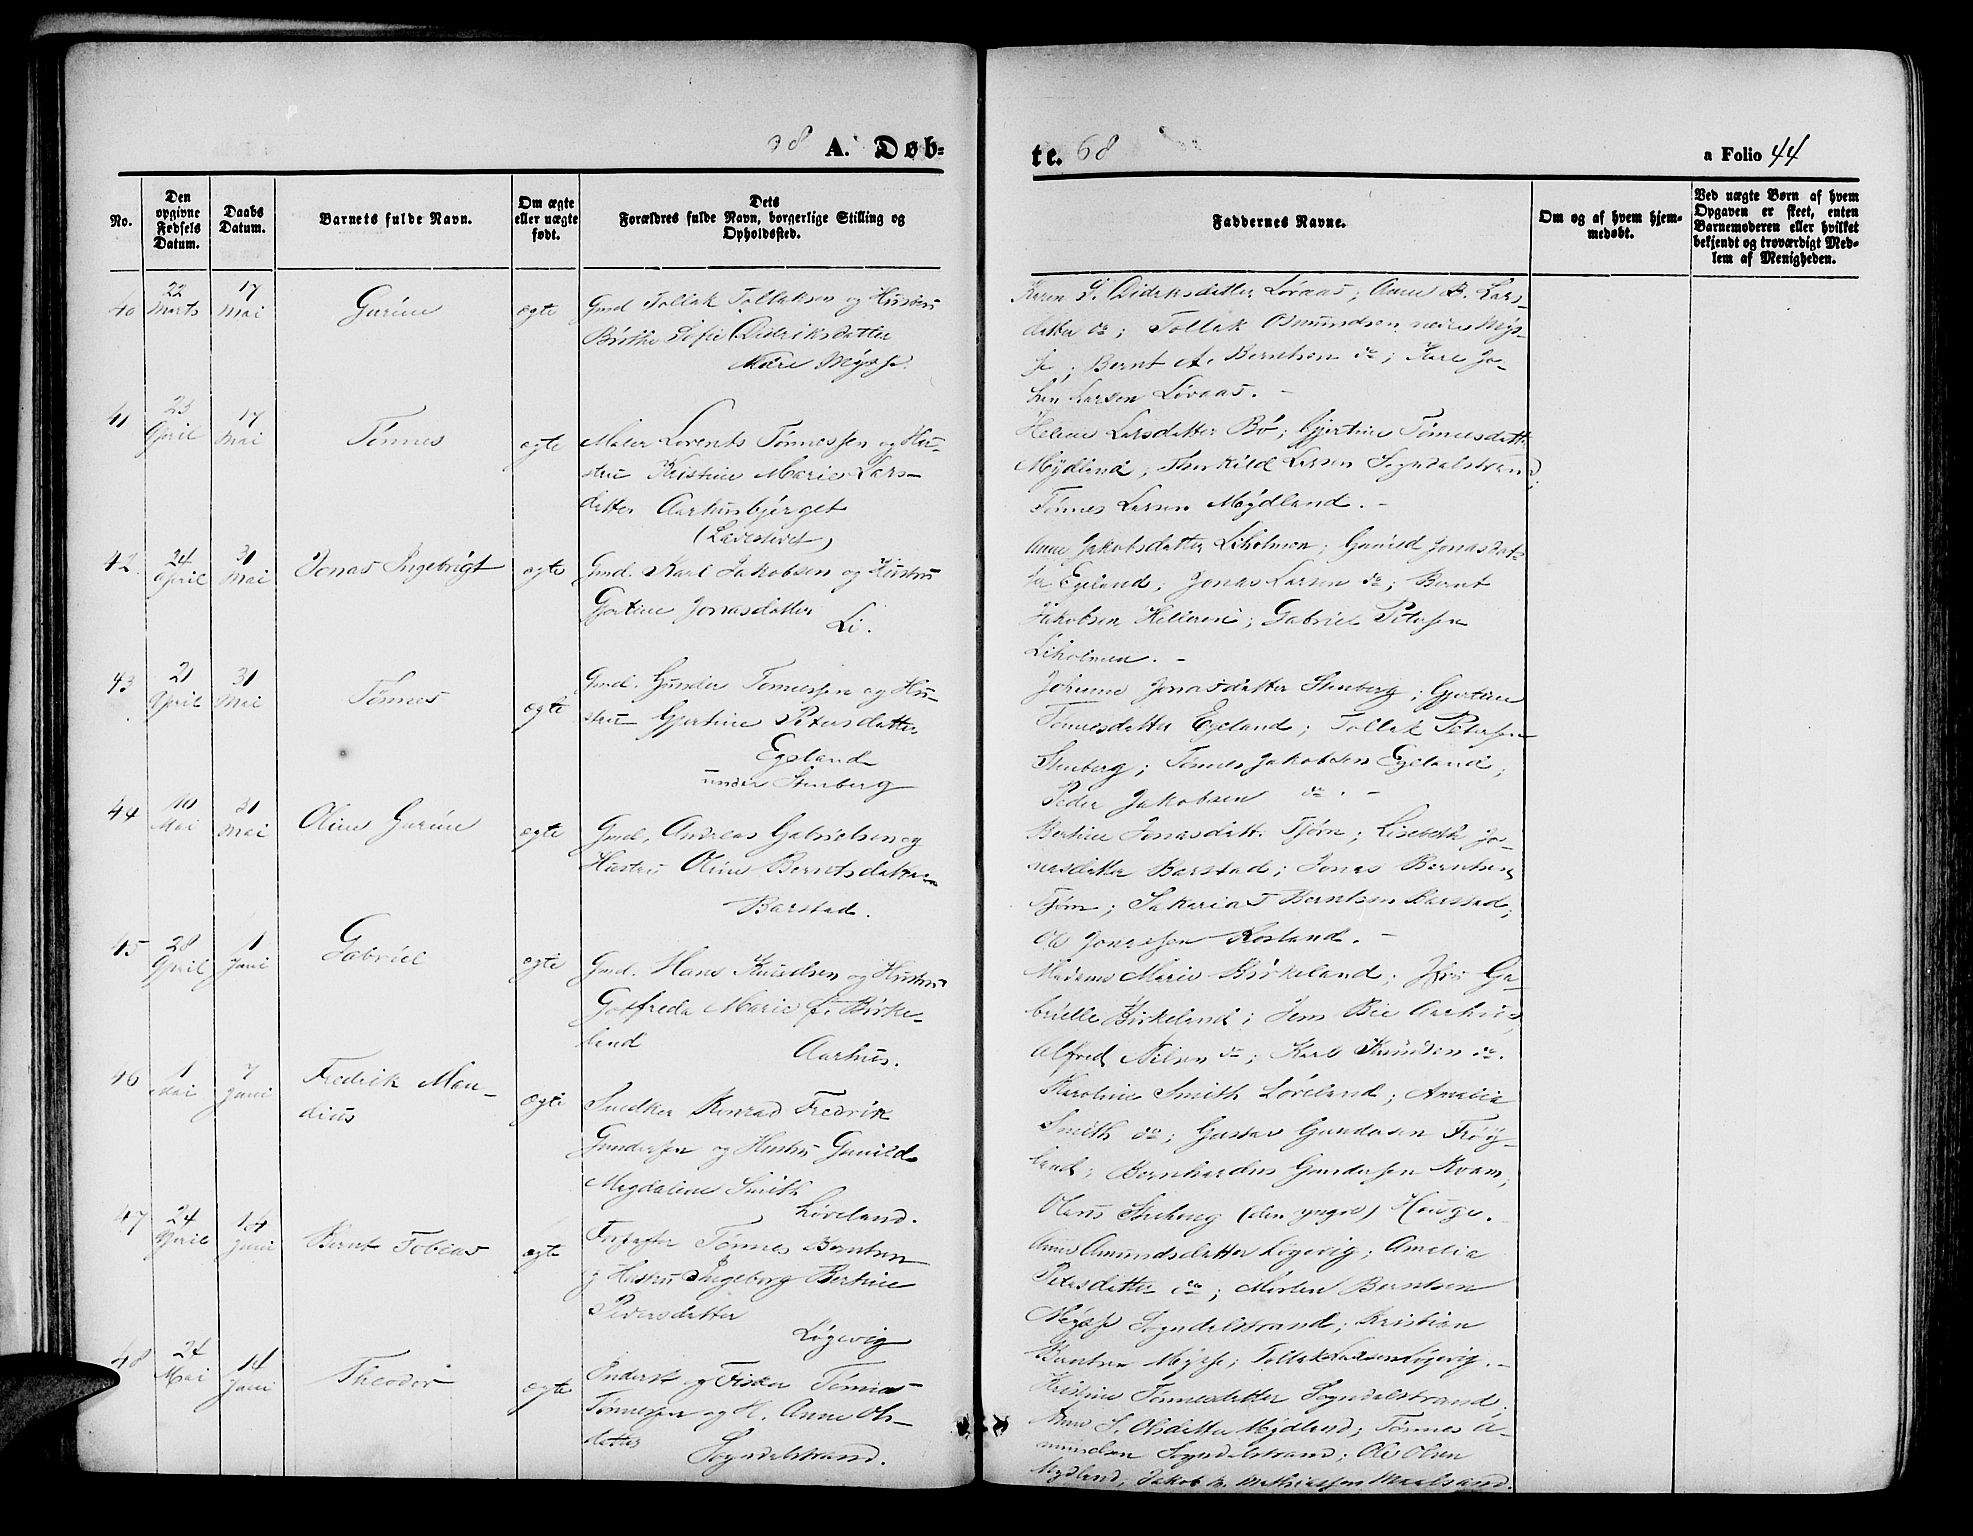 A. Døb=
te. 68
a Folio 44
No.
Den opgivne Fødsels Datum.
Daabs Datum.
Barnets fulde Navn.
Om ægte eller uægte født.
Dets Forældres fulde Navn, borgerlige Stilling og Opholdssted.
Faddernes Navne.
Om og af hvem hjem=
medøbt.
Ved uægte Børn af hvem
Opgaven er skeet, enten
Barnemoderen eller hvilket
bekjendt og troværdigt Med=
lem af Menigheden.
40
22 Marts
17 Mai
Gurine
ægte
Gmd Tollak Tollaksen og Hustru
Birthe Sofie Didriksdatter
Mysse
Karen S. Didriksdatter Løvaas; Anne B. Lars-
datter do; Tollak Osmundsen
; Bernt A. Berntsen do; Karl Jo-
han Larsen Løvaas. -
41
23 April
17 Mai
Tønnes
ægte
Maler Lorents Tønnessen og Hu-
stru Kristine Marie Lars-
datter Aarhusbjerget
Helene Larsdatter Bø; Gjertine Tønnesdatter
Mydland; Larsen Sogndalstrand;
Tønnes Larsen Mydland. -
42
24 April
31 Mai
Jonas Ingebrigt
ægte
Gmd. Karl Jakobsen og Hustru
Gjertine Jonasdatter
Li.
Anne Jakobsdatter Liholmen; Gunild Jonasdat-
ter Egeland; Jonas Larsen do; Bernt
Jakobsen; Gabriel Petersen
Liholmen. -
43
21 April
31 Mai
Tønnes
ægte
Gmd. Gunder Tønnessen og Hu-
stru Gjertine Petersdatter
Egeland
under Stenberg
Johanne Jonasdatter Stenberg; Gjertine
Tønnesdatter Egeland; Tollak Petersen
Stenberg; Tønnes Jakobsen Egeland;
Peder Jakobsen do. -
44
10 Mai
31 Mai
Oline Gurine
ægte
Gmd. Andreas Gabrielsen og
Hustru Oline Berntsdatter
Barstad.
Bertine Jonasdatt. Tjørn; Lisebeth Jo-
nasdatter Barstad; Jonas Berntsen
Tjørn; Sakarias Berntsen Barstad;
Ole Jonassen Rosland. -
45
28 April
1 Juni
Gabriel
ægte
Gmd. Hans Knudsen og Hustru
Gotfreda Marie f. Birke-
land
Aarhus.
Madame Marie Birkeland; Ga-
brielle Birkeland; Jens Bie Aarhus;
Alfred Nilsen do; Karl Knudsen do.
46
1 Mai
7 Juni
Fredrik Man-
dius
ægte
Snedker Konrad Fredrik
Gundersen og Hustru Gunild
Magdalene Smith
Løveland.
Karoline Smith Løveland; Amalia
Smith do; Gustav Gundersen Frøy-
land; Bernhardus Gundersen Kvam;
(den yngre) Hauge.
47
24 April
14 Juni
Bernt Tobias
ægte
Tønnes Berntsen
og Hustru Ingeborg Bertine
Pedersdatter
Løgevig
Anne Amundsdatter Løgevig; Amalia
Petersdatter do; Morten Berntsen
Sogndalstrand; Kristian
Berntsen Mysse; Tollak Larsen Løgevig. -
48
24 Mai
14 Juni
Theodor
ægte
Inderst og Fisker Tønnes
Tønnessen og H. Anne Ols-
datter
Sogndalstrand.
Kristine Tønnesdatter Sogndalstrand;
Anne S. Olsdatter Mydland; Tønnes A-
mundsen Sogndalstrand; Ole Olsen
Mydland; Jakob M. Mathiassen